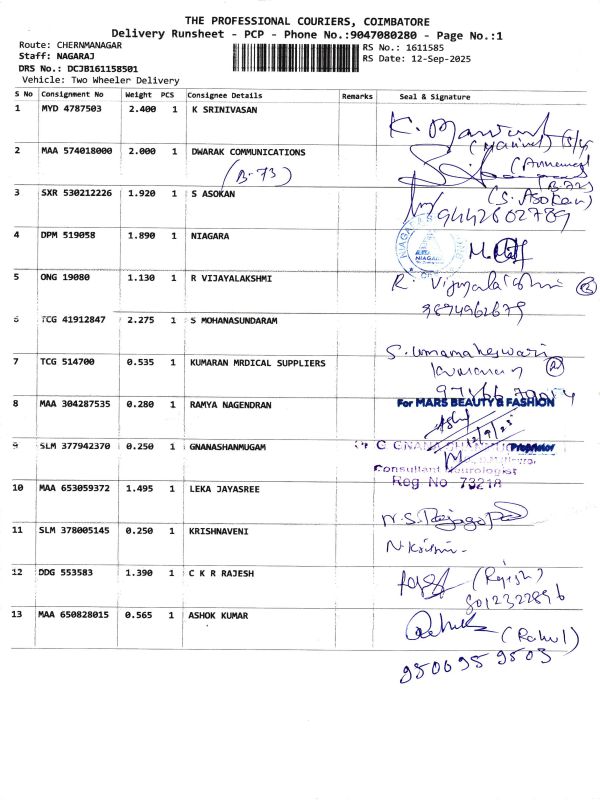 THE PROFESSIONAL COURIERS, COIMBATORE
Delivery Runsheet - PCP - Phone No.:9047080280 - Page No.:1
Route: CHERNMANAGAR
Staff: NAGARAJ
DRS No.: DCJB161158501
Vehicle: Two Wheeler Delivery
RS No.: 1611585
RS Date: 12-Sep-2025
S No Consignment No Weight PCS Consignee Details Remarks Seal & Signature
1 MYD 4787503 2.400 1 K SRINIVASAN
2 MAA 574018000 2.000 1 DWARAK COMMUNICATIONS
(B-73)
3 SXR 530212226 1.920 1 S ASOKAN (S. Asokan)
9442602789
4 DPM 519058 1.890 1 NIAGARA NIAGARA
5 ONG 19080 1.130 1 R VIJAYALAKSHMI R. Vijayalakshmi
3894962679
6 TCG 41912847 2.275 1 S MOHANASUNDARAM
S. Umamaheswari
7 TCG 514700 0.535 1 KUMARAN MRDICAL SUPPLIERS Kumaran
8 MAA 304287535 0.280 1 RAMYA NAGENDRAN For MARS BEAUTY & FASHION
12/9/25
9 SLM 377942370 0.250 1 GNANASHANMUGAM Proprietor
Consultant Neurologist
Reg No 73218
10 MAA 653059372 1.495 1 LEKA JAYASREE
11 SLM 378005145 0.250 1 KRISHNAVENI
12 DDG 553583 1.390 1 C K R RAJESH (Rajesh)
8012322896
13 MAA 650828015 0.565 1 ASHOK KUMAR (Rahul)
9500959503